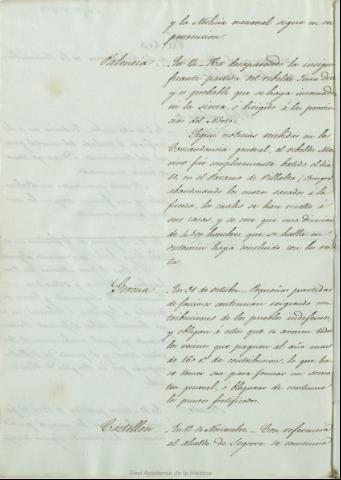 y la Milicia nacional sigue en su
persecucion.
Palencia En 12. Ha desaparecido la insigni
ficante partida del rebelde
y es probable que se haya internado
en la sierra, ó dirigido á las provin
cias del Norte.
Segun noticias recibidas en la
Comandancia general, el rebelde Me
rino fué completamente batido el dia
en el Paramo de Villolea,
abandonando los mozos sacados á la
fuerza, los cuales se han vuelto á
sus casas, y se cree que una division
de 4.500 hombres que se halla en
haya concluido con los res
tos.
Gerona En 31 de octubre. Pequeñas partidas
de facciosos continuan exigiendo con
tribuciones de los pueblos indefensos,
y obligan á estos que se armen todos
los vecinos que paguen al año mas
de 160 r.s de contribucion; lo que ha
ce temer sea para formar un soma
ten general, ó bloquear de continuo
los puntos fortificados.
Castellon En 12 de Noviembre. Con referencia
al alcalde de Segorve se comunica
Real Academia de la Historia